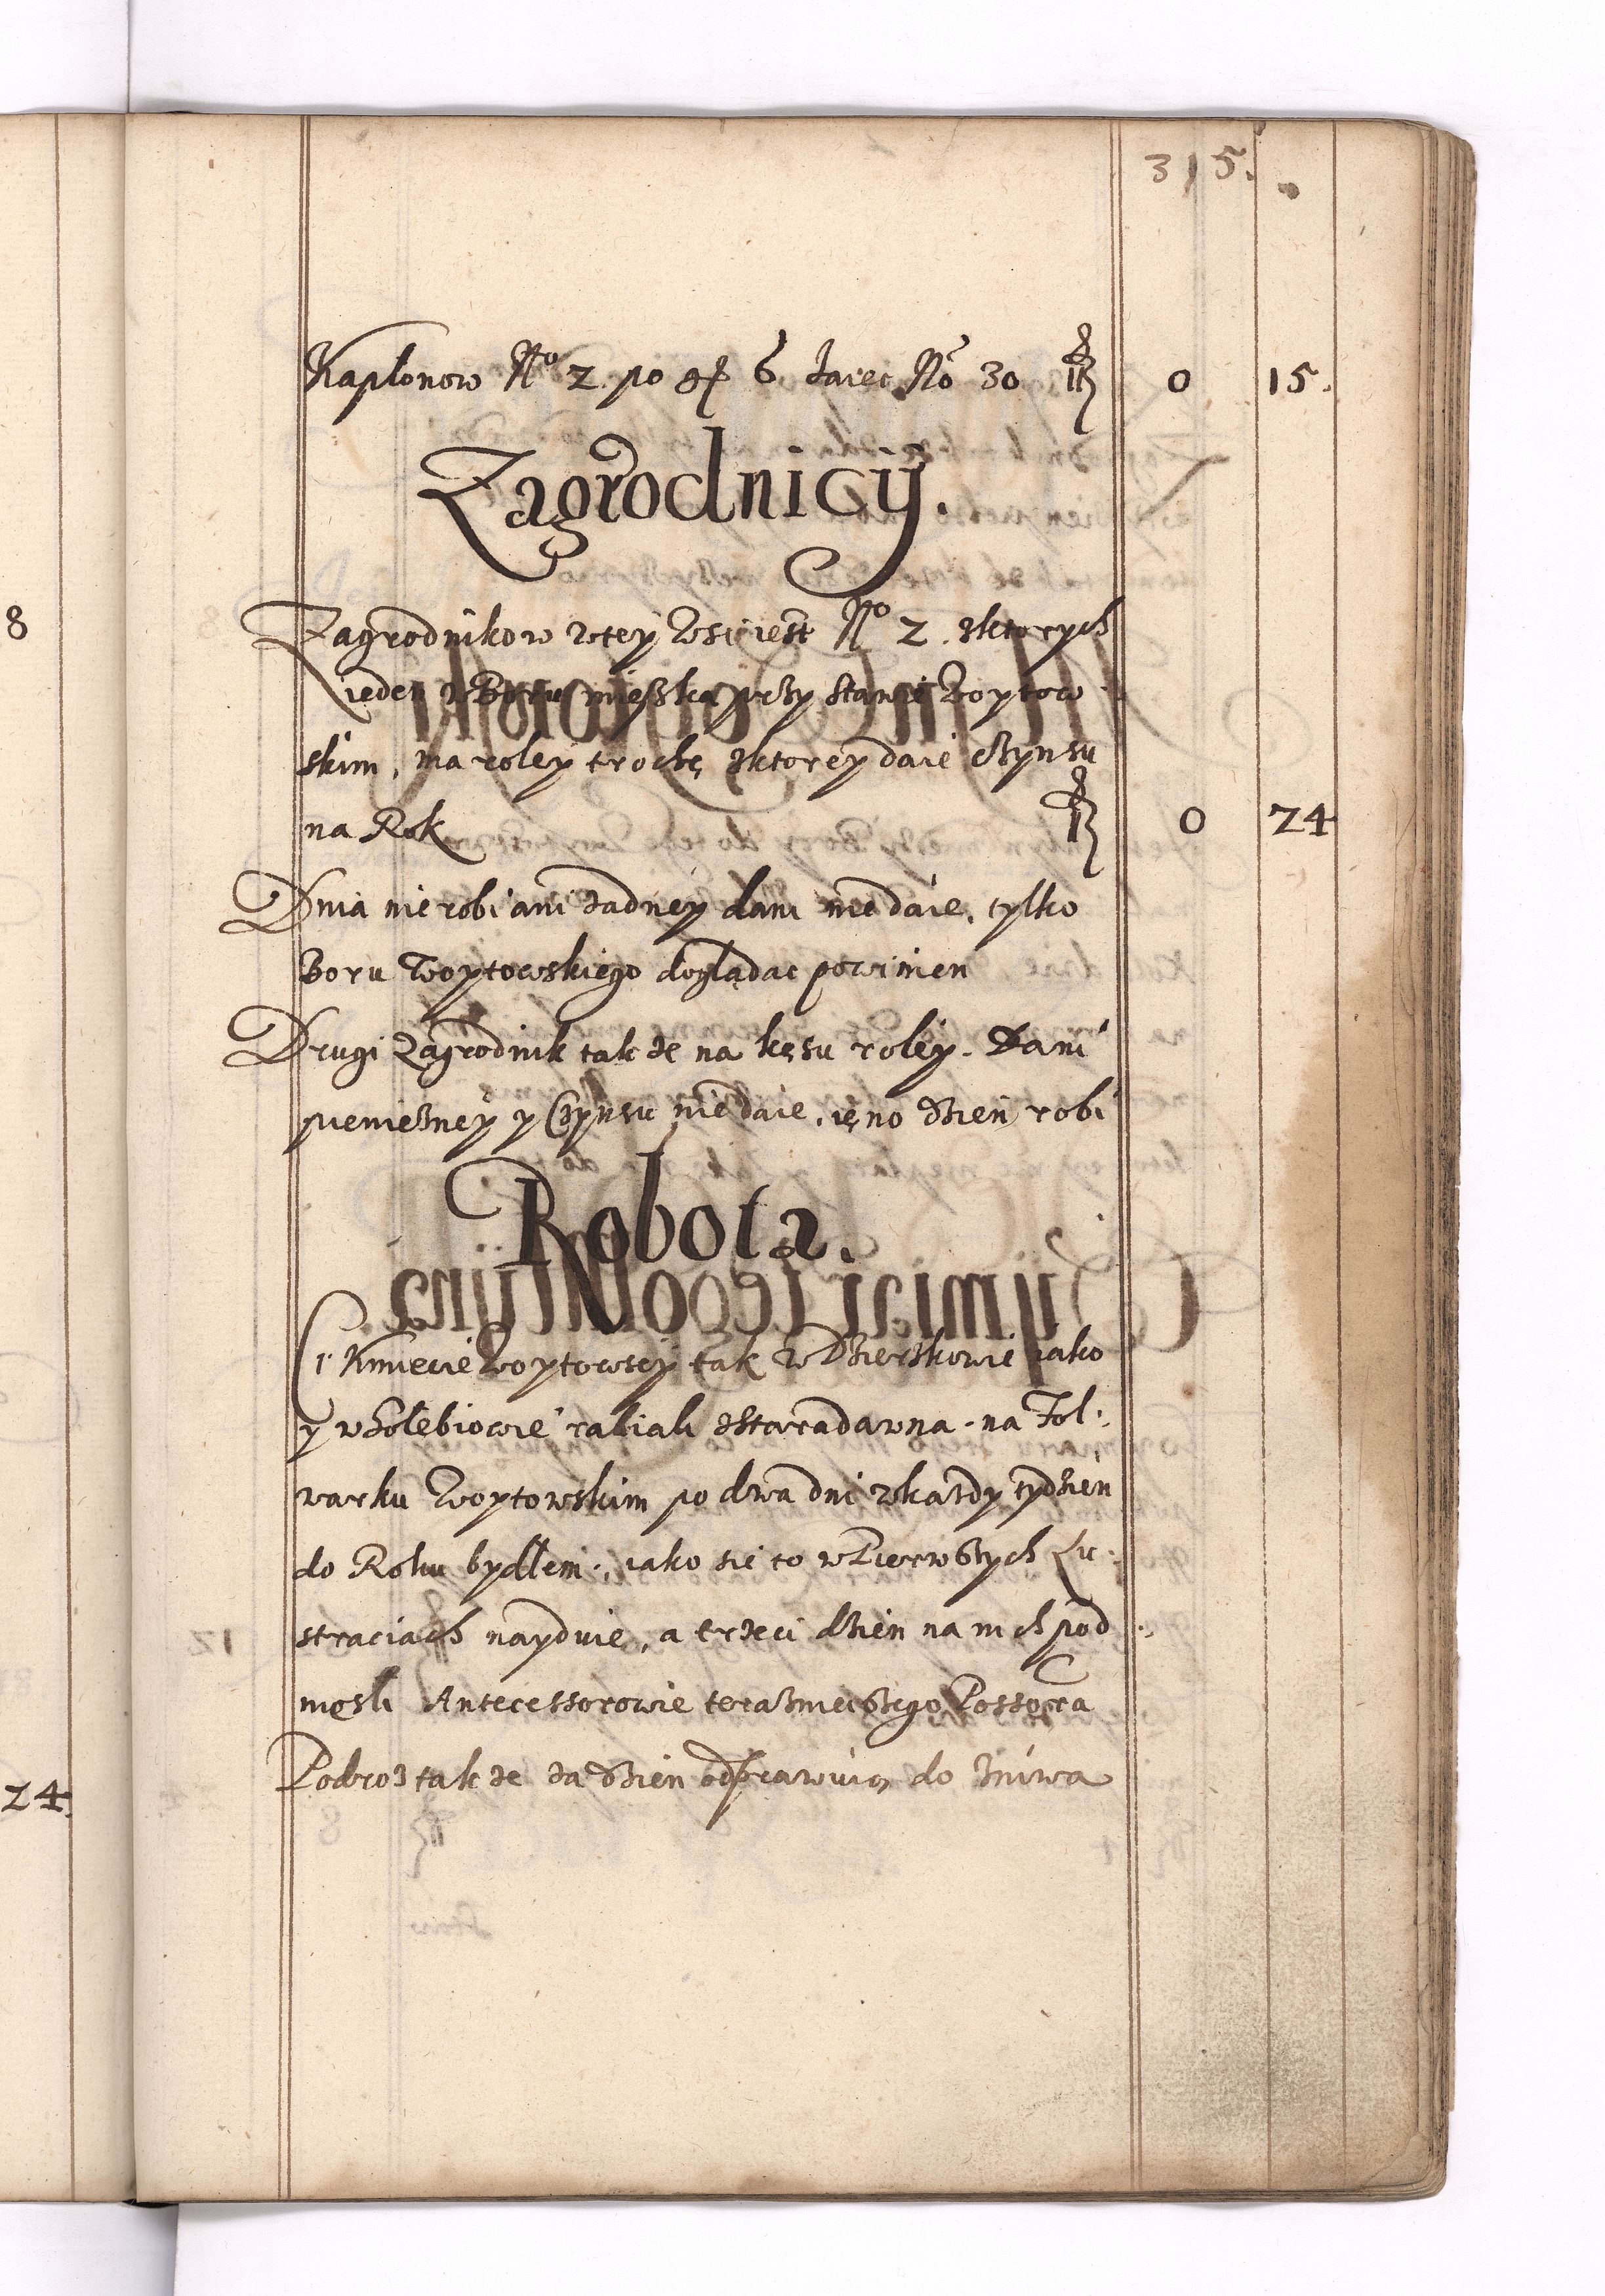 315.
Kaplonow No 2. po gr 6 Jaiec No 30 0 15.
Zagrodnicy.
Zagrodnikow w tey Wsi iest No 2. z ktorych
ieden w Boru mieszka przy stawie Woytow
skim, ma roley trochę z ktorey daie czynsu
na Rok 0 24
Dnia nie robi ani żadney dani nie daie, tylko
Boru Woytowskiego doglądac powinien
Drugi Zagrodnik tak że na kęsu roley. Dani
pienieżney y Czynsu nie daie, ięno dzien robi
Robota.
Ci Kmiecie Woytowscy tak w Dzierzkowie iako
y w Golebiowie rabiali z staradawna na Fol:
warku Woytowskim po dwa dni w każdy tydzien
do Roku bydłem, iako się to w Pierwszych Lu:
straciach nayduie, a trzeci dzien na nich pod
niesli Antecessorowie teraznieiszego Possora
Podroż tak że za dzien odprawuią do żniwa
8
24.